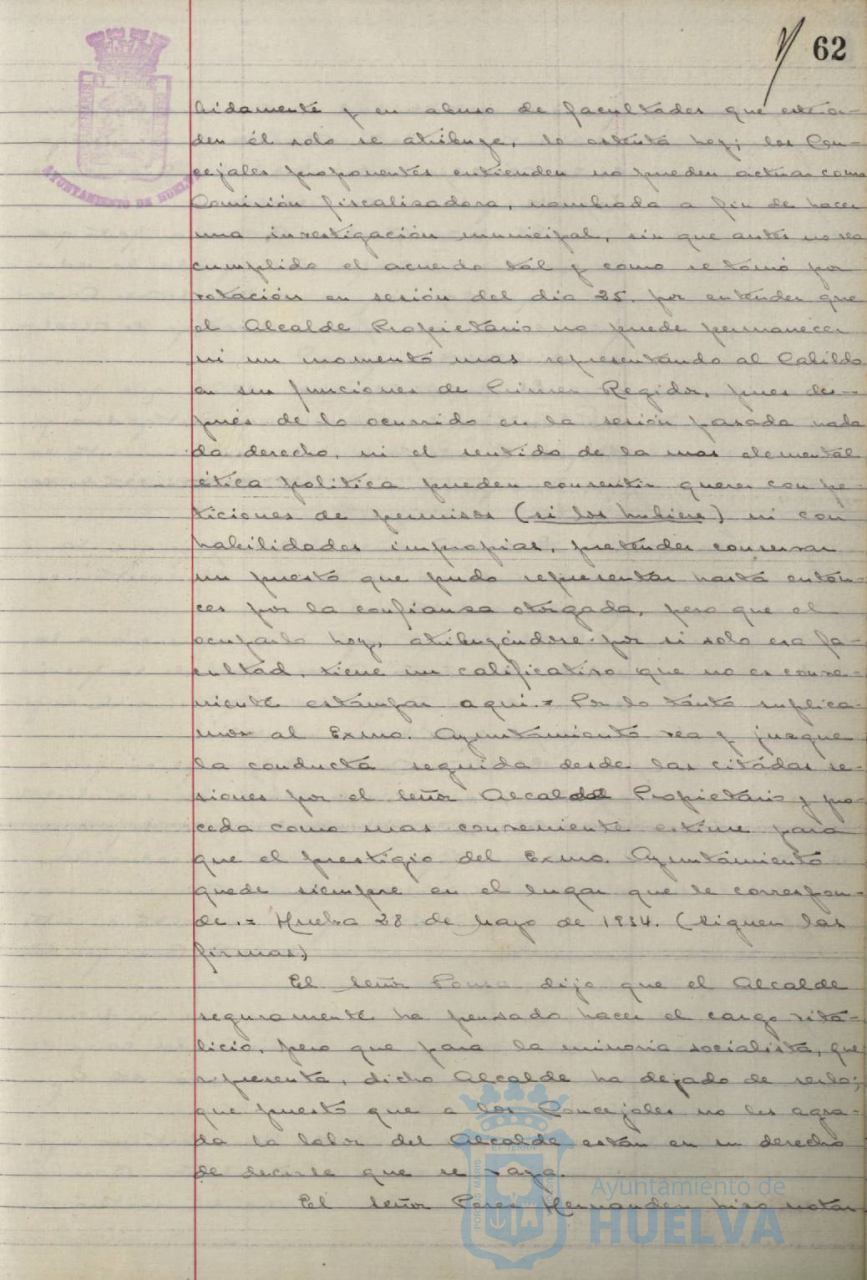 62
AYUNTAMIENTO DE HUELVA
bidamente y en abuso de facultades que
den él solo se atribuye, lo ostenta hoy; los Con-
cejales proponentes entienden no pueden actuar como
Comisión fiscalisadora, nombrada a fin de hacer
una investigación municipal, sin que antes no sea
cumplido el acuerdo tál y como se tomó por
votación en sesión del dia 25. por entender que
el Alcalde Propietario no puede permanecer
ni un momento mas representando al Cabildo
en sus funciones de Primer Regidor, pues des-
pués de lo ocurrido en la sesión pasada nada
da derecho, ni el sentido de la mas elemental
ética politica pueden consentir querer con pe-
ticiones de permisos (si los hubiere) ni con
habilidades impropias, pretender conservar
un puesto que pudo representar hasta enton-
ces por la confiansa otorgada, pero que el
ocuparlo hoy, atribuyéndose por si solo esa fa-
cultad, tiene un calificativo que no es conve-
niente estampar aqui.= Por lo tanto suplica-
mos al Exmo. Ayuntamiento vea y jusgue
la conducta seguida desde las citadas se-
siones por el señor Alcalde Propietario y pro-
ceda como mas conveniente estime para
que el prestigio del Exmo. Ayuntamiento
quede siempre en el lugar que le correspon-
de.= Huelva 28 de Mayo de 1934. (Siguen las
firmas)
El señor Ponsa dijo que el Alcalde
seguramente ha pensado hacer el cargo vita-
licio, pero que para la minoria socialista, que
representa, dicho Alcalde ha dejado de serlo;
que puesto que a los Concejales no les agra-
da la labor del Alcalde están en su derecho
de decirle que se vaya.
El señor Peres Hernandes hiso notar
Ayuntamiento de
HUELVA